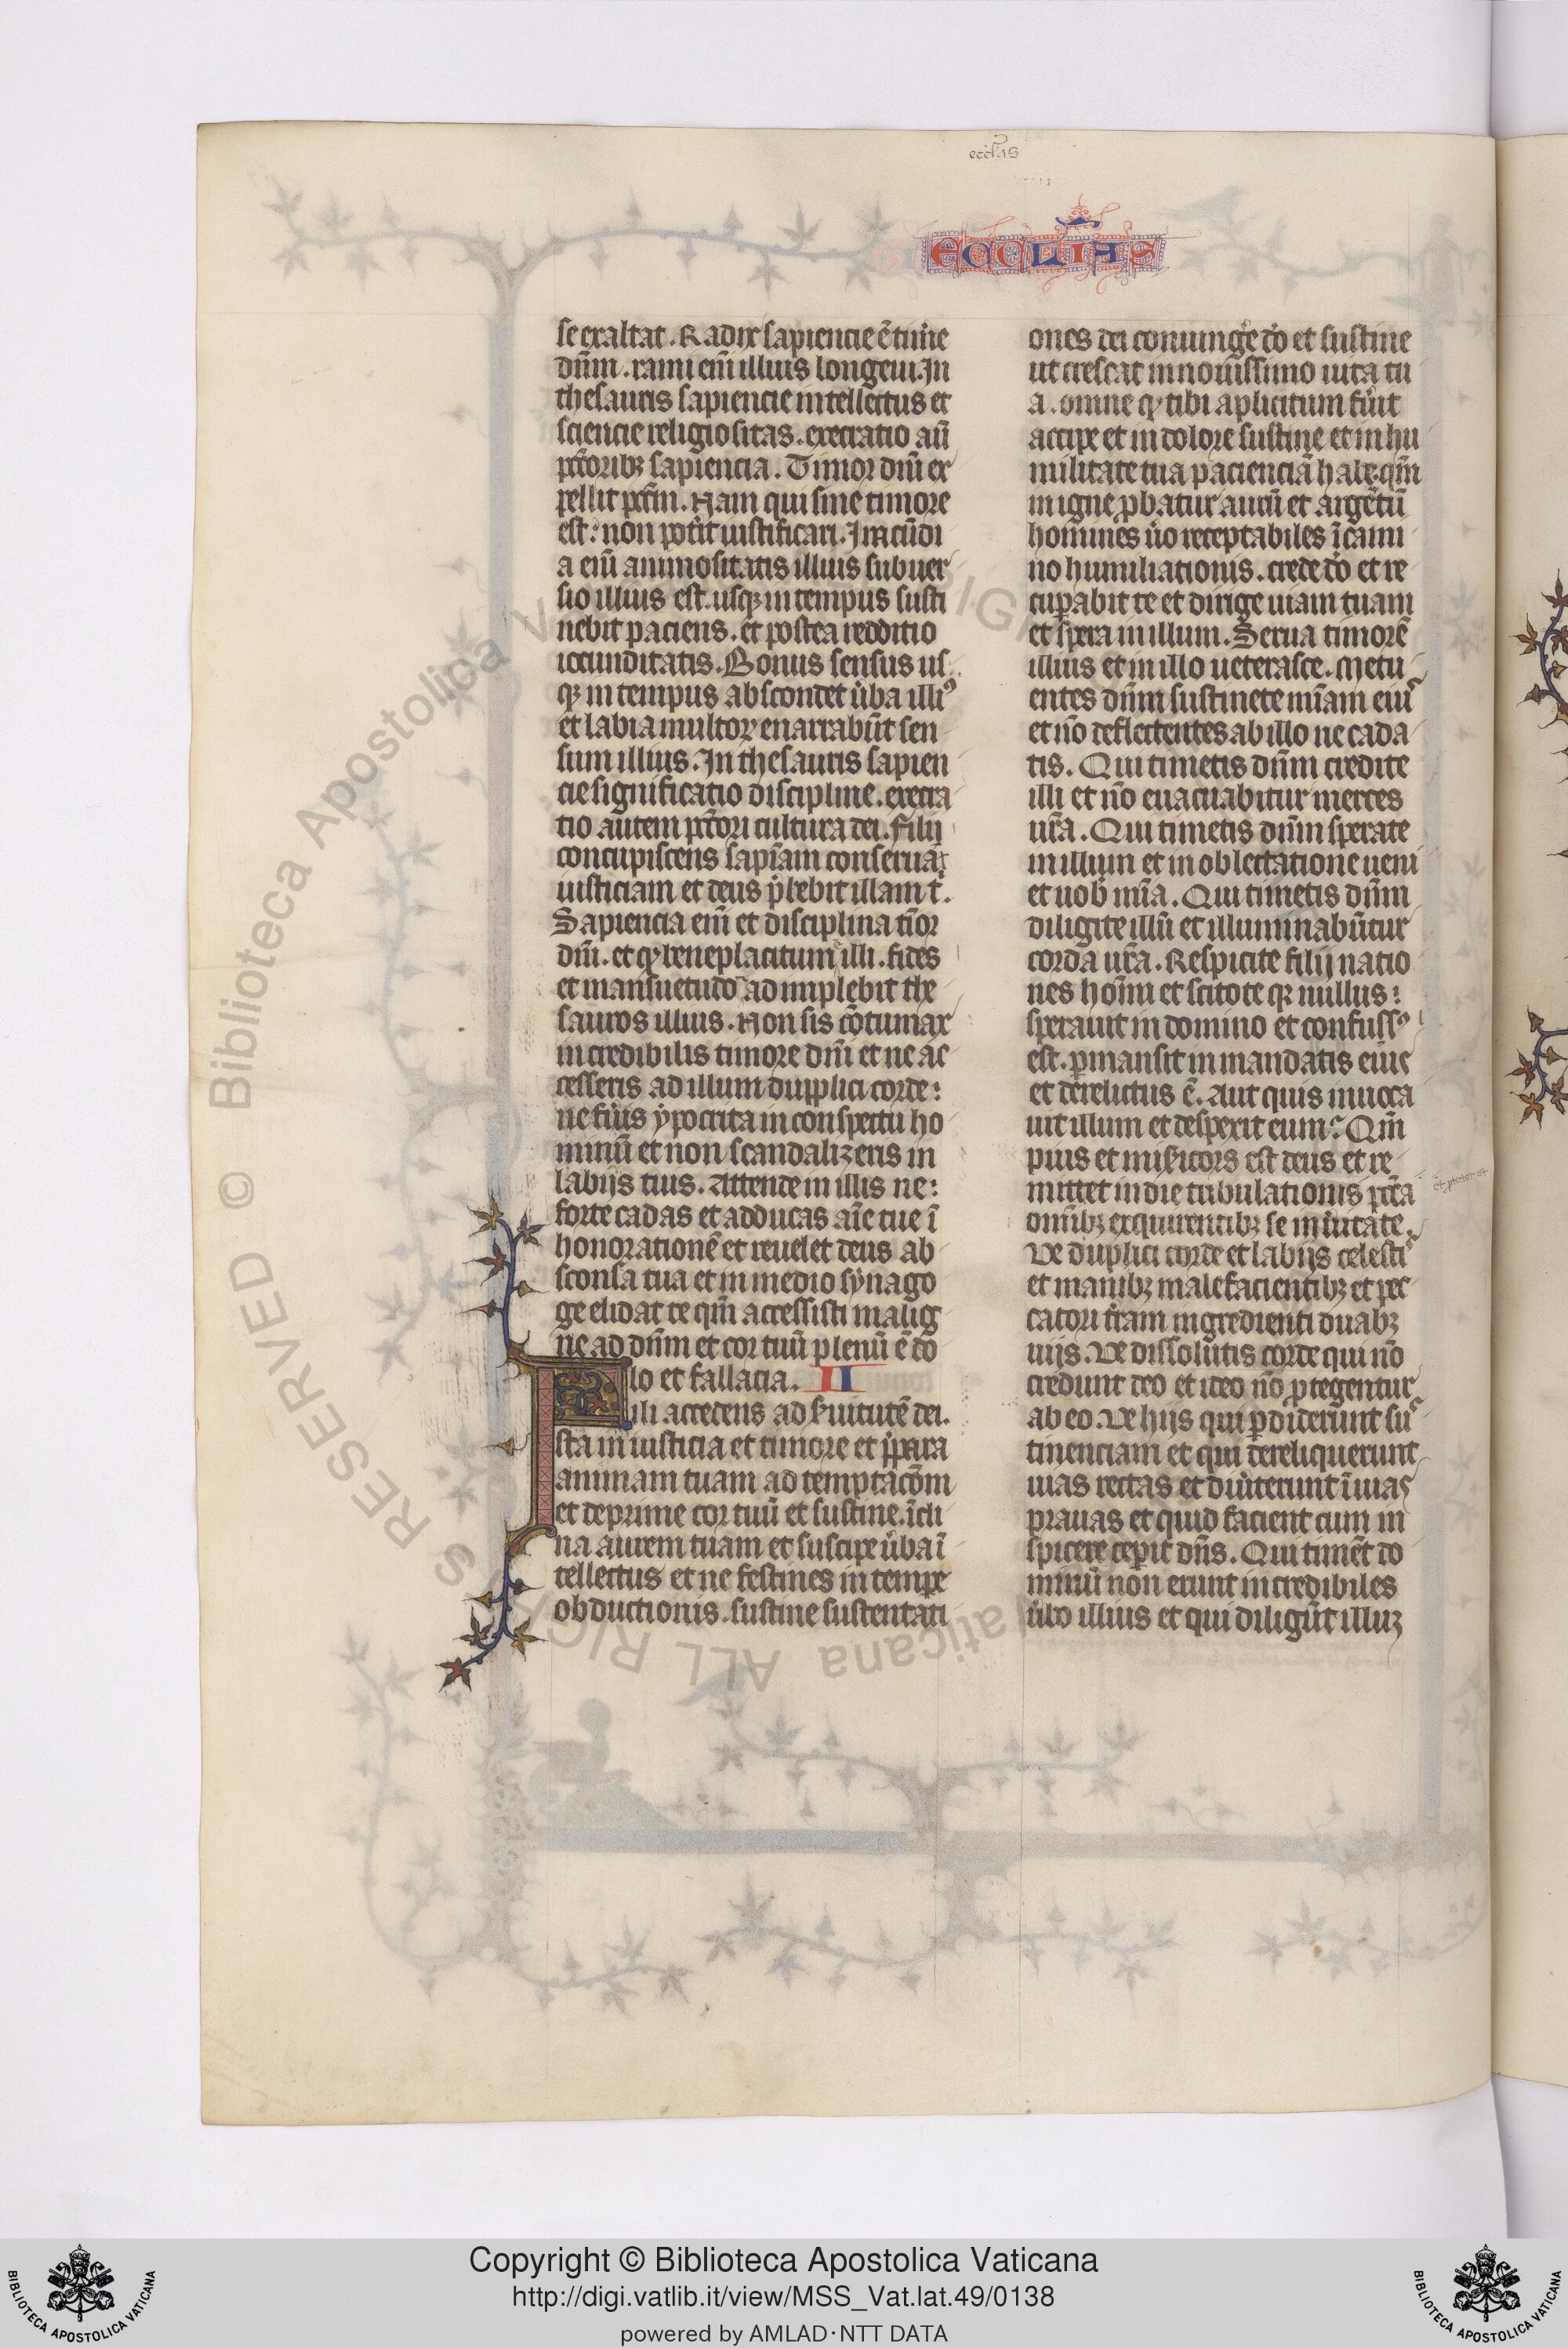 eccl'as
ECCLIAS
se exaltat. Radix sapiencie ē tim̄e
dn̄m. rami eni͂ illius longeui. In
thesauris sapiencie intellectus et
sciencie religiositas. execratio au͂
pctōribꝫ sapiencia. Timor dn̄i ex
pellit pctm̄. Nam qui sine timore
est: non pot͛it iustificari. Iracu͂di
a eni͂ animositatis illius subuer
sio illius est. usqꝫ in tempus susti
nebit paciens. et postea redditio
iocunditatis. Bonus sensus us
qꝫ in tempus abscondet u͛ba illiꝰ
et labia multoꝝ enarrabu͂t sen
sum illius. In thesauris sapien
cie significatio discipline. execra
tio aūtem pctōri cultura dei. Filij
concupiscens sapīam conserua͂
iusticiam et deus p͛bebit illam t͛.
Sapiencia eni͂ et disciplina tīor
dn̄i. et qꝫ beneplacitum illi. fides
et mansuetudo adimplebit the
sauros illius. Non sis co͂tumax
incredibilis timore dn̄i et ne ac
cesseris ad illum dupplici corde:
ne fu͛is ypocrita in conspectu ho
minu͂ et non scandalizeris in
labijs tuis. Attende in illis ne:
forte cadas et adducas aīe tue ī
honoratione͂ et reuelet deus ab
sconsa tua et in medio synago
ge elidat te qm̄ accessisti malig
ne ad dn̄m et cor tuu͂ plenu͂ ē do
lo et fallacia. II
Fili accedens ad s͛uitute͂ dei.
sta in iusticia et timore et p͛para
animam tuam ad temptacōm
et deprime cor tuu͂ et sustine. īcli
na aurem tuam et suscipe u͛ba ī
tellectus et ne festines in tempe
obductionis. sustine sustentati
ones dei coniunge͛ do͛ et sustine
ut crescat in nouissimo uita tu
a. omne qꝫ tibi aplicitum fu͛it
accipe et in dolore sustine et in hu
militate tua pacienciā habe. qm̄
in igne ꝓbatur auru͂ et arge͂tu͂
homines u͛o receptabiles ī cami
no humiliationis. crede do͛ et re
cuꝑabit te et dirige uiam tuam
et spera in illum. Serua timore͂
illius et in illo ueterasce. Metu
entes dn̄m sustinete mīam eius
et no͂ deflectentes ab illo ne cada
tis. Qui timetis dn̄m credite
illi et no͂ euacuabitur merces
ur̄a. Qui timetis dn̄m sperate
in illum et in oblectatione ueni
et uob͛ mīa. Qui timetis dn̄m
diligite illu͂ et illuminabu͂tur
corda ur̄a. Respicite filij natio
nes hoīm et scitote qꝫ nullus:
sperauit in domino et confussꝰ
est. ꝑmansit in mandatis eius
et derelictus ē. Aut quis inuoca
uit illum et despexit eum: Qm̄
pius et mis͛icors est deus et re
mittet in die tribulationis pcc̄a
om̄ibꝫ exquirentibꝫ se in u͛itate.
Ve duplici corde et labijs celestis
et manibꝫ malefacientibꝫ et pec
catori t͛ram ingredienti duabꝫ
uijs. Ve dissolutis corde qui no͂
credunt deo et ideo no͂ ꝓtegentur
ab eo. Ve hijs qui ꝑdiderunt sus
tinenciam et qui dereliquerunt
uias rectas et diu͛terunt ī uias
prauas et quid facient cum in
spicere ceꝑit dn̄s. Qui time͂t do
minu͂ non erunt incredibiles
u͛bo illius et qui diligu͂t illuꝫ
Copyright © Biblioteca Apostolica Vaticana
http://digi.vatlib.it/view/MSS_Vat.lat.49/0138
powered by AMLAD·NTT DATA
BIBLIOTECA APOSTOLICA VATICANA
BIBLIOTECA APOSTOLICA VATICANA